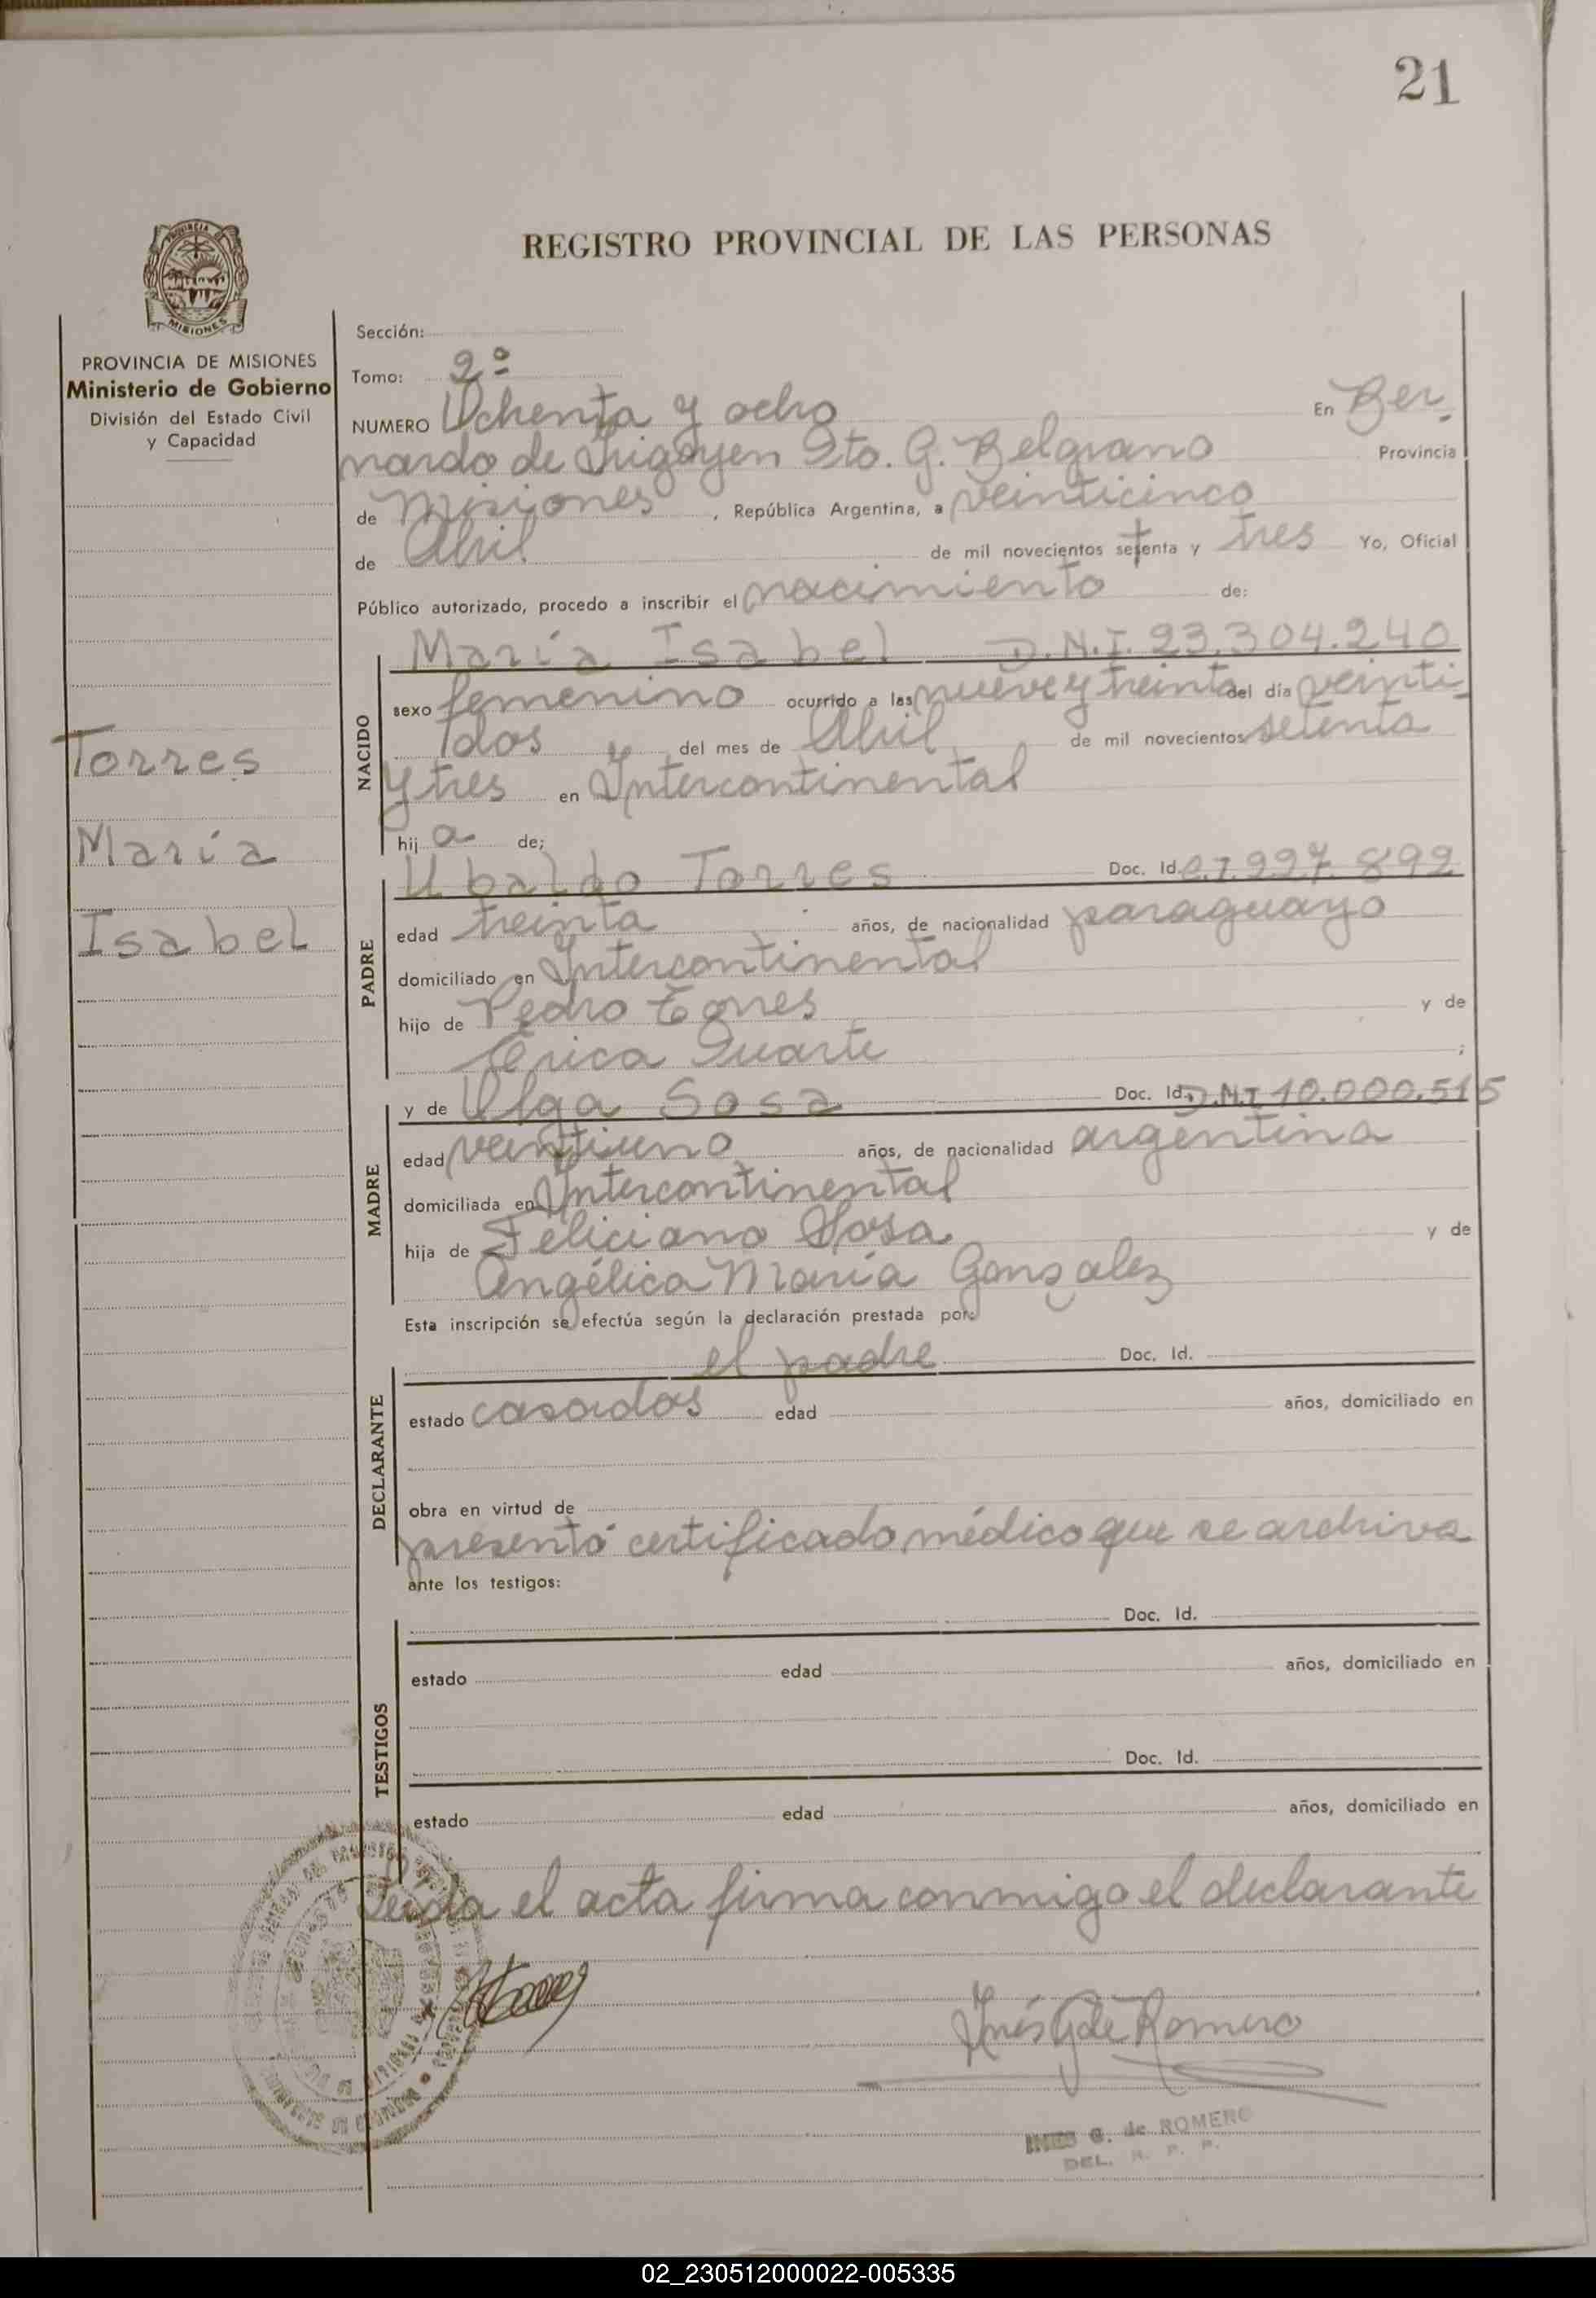 21
REGISTRO PROVINCIAL DE LAS PERSONAS
PROVINCIA DE
MISIONES
PROVINCIA DE MISIONES
Ministerio de Gobierno
División del Estado Civil
y Capacidad
Torres
María
Isabel
Sección:
Tomo: 2º
NUMERO Ochenta y ocho En Ber-
nardo de Irigoyen Dto. G. Belgrano Provincia
de Misiones, República Argentina, a veinticinco
de Abril de mil novecientos setenta y tres Yo, Oficial
Público autorizado, procedo a inscribir el nacimiento de:
NACIDO
María Isabel D.N.I. 23.304.240
sexo femenino ocurrido a las nueve y treinta del día veinti-
dos del mes de Abril de mil novecientos setenta
y tres en Intercontinental
hij a de;
PADRE
Ubaldo Torres Doc. Id. 997.892
edad treinta años, de nacionalidad paraguayo
domiciliado en Intercontinental
hijo de Pedro Torres y de
Duarte ;
MADRE
y de Olga Sosa Doc. Id. D.N.I 10.000.515
edad veintiuno años, de nacionalidad argentina
domiciliada en Intercontinental
hija de Feliciano Sosa y de
Angélica María Gonzalez
Esta inscripción se efectúa según la declaración prestada por:
DECLARANTE
el padre Doc. Id.
estado casados edad años, domiciliado en
obra en virtud de
presentó certificado médico que se archiva
ante los testigos:
TESTIGOS
Doc. Id.
estado edad años, domiciliado en
Doc. Id.
estado edad años, domiciliado en
Leida el acta firma conmigo el declarante
Inés G de Romero
INES G. de ROMERO
DEL. R. P. P.
02_230512000022-005335